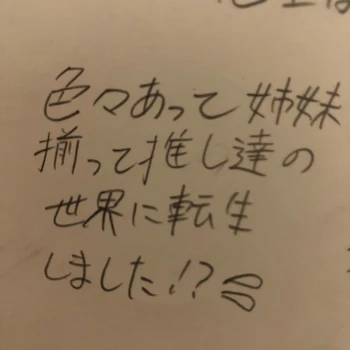 色々あって姉妹
揃って推し達の
世界に転生
しました!?